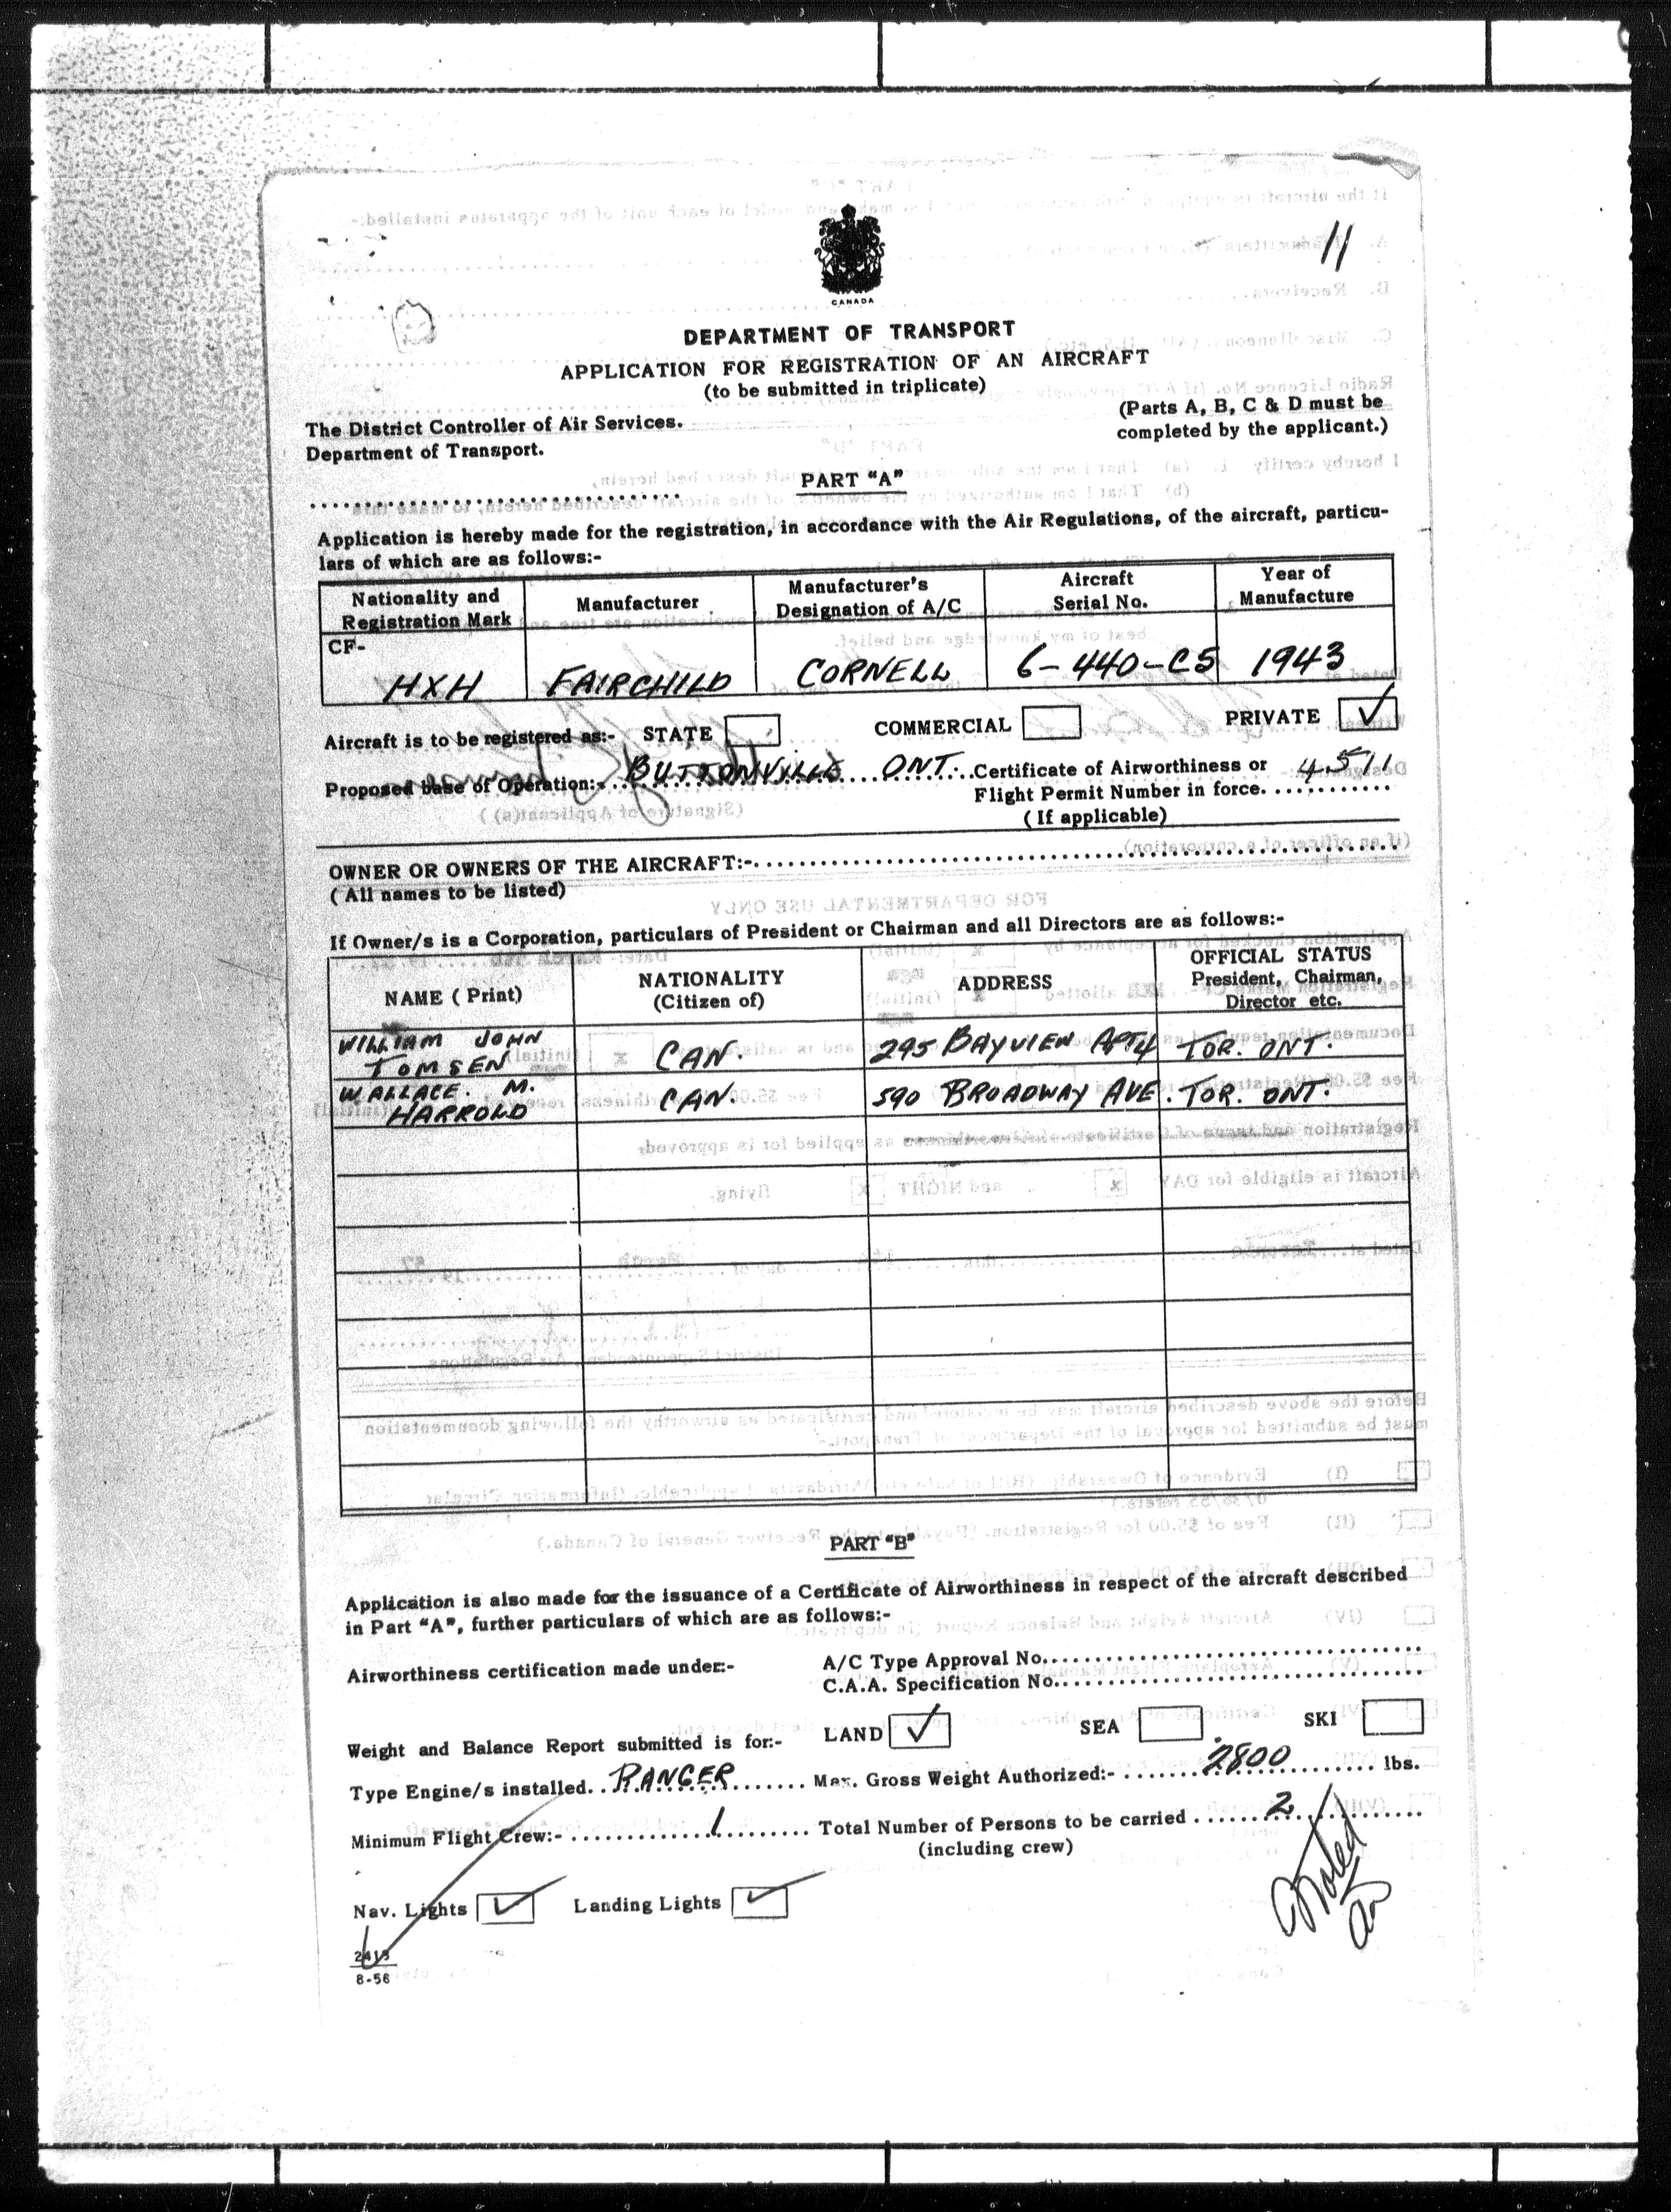 11
CANADA
DEPARTMENT OF TRANSPORT
APPLICATION FOR REGISTRATION OF AN AIRCRAFT
(to be submitted in triplicate)
The District Controller of Air Services.
Department of Transport.
(Parts A, B, C & D must be
completed by the applicant.)
PART "A"
Application is hereby made for the registration, in accordance with the Air Regulations, of the aircraft, particu-
lars of which are as follows:-
Nationality and Registration Mark Manufacturer Manufacturer's Designation of A/C Aircraft Serial No. Year of Manufacture
CF-
HXH FAIRCHILD CORNELL 6-440-C5 1943
Aircraft is to be registered as:- STATE COMMERCIAL PRIVATE ✓
Proposed base of Operation:- BUTTONVILLE ONT. Certificate of Airworthiness or 4511
Flight Permit Number in force.
(If applicable)
OWNER OR OWNERS OF THE AIRCRAFT:-
(All names to be listed)
If Owner/s is a Corporation, particulars of President or Chairman and all Directors are as follows:-
NAME (Print) NATIONALITY (Citizen of) ADDRESS OFFICIAL STATUS President, Chairman, Director etc.
WILLIAM JOHN
TOMSEN CAN. 295 BAYVIEW APT4 TOR. ONT.
WALLACE. M.
HARROLD CAN. 590 BROADWAY AVE. TOR. ONT.
PART "B"
Application is also made for the issuance of a Certificate of Airworthiness in respect of the aircraft described
in Part "A", further particulars of which are as follows:-
Airworthiness certification made under:- A/C Type Approval No.
C.A.A. Specification No.
Weight and Balance Report submitted is for:- LAND ✓ SEA SKI
Type Engine/s installed. RANGER Max. Gross Weight Authorized:- 2800 lbs.
Minimum Flight Crew:- 1 Total Number of Persons to be carried 2
(including crew)
Nav. Lights ✓ Landing Lights ✓
Noted
8-56